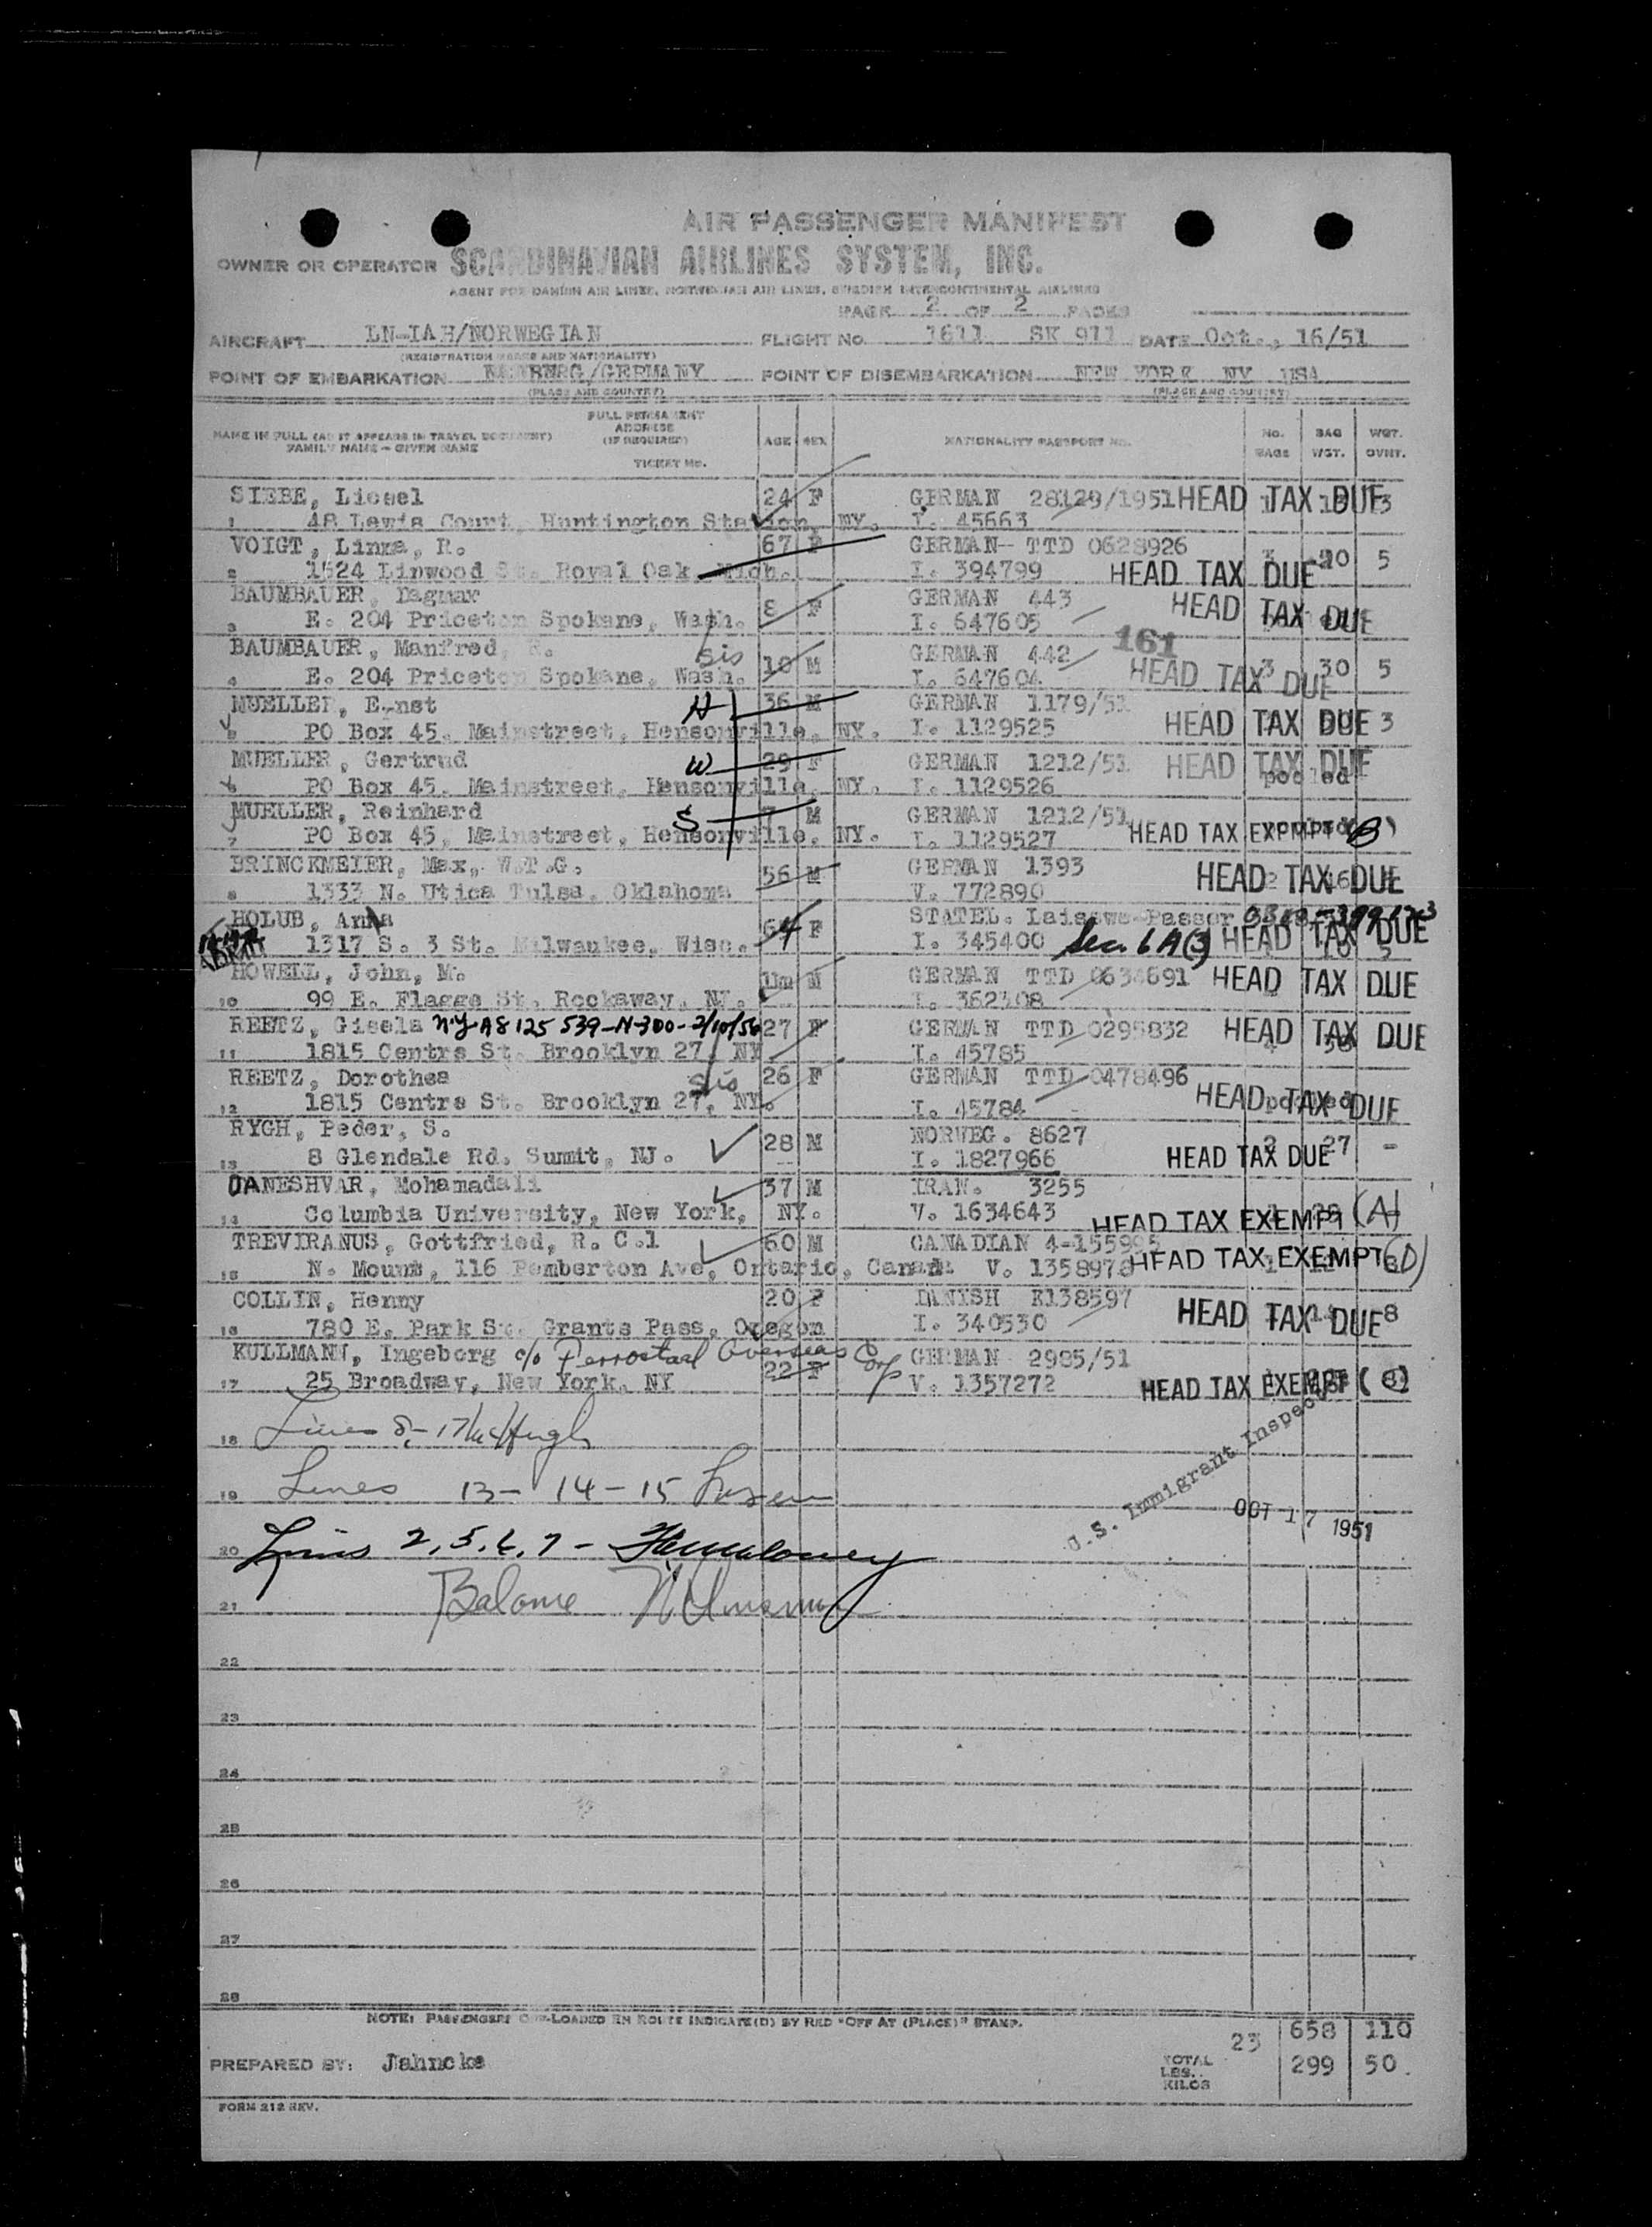 AIR PASSENGER MANIFEST
OWNER OR OPERATOR SCANDINAVIAN AIRLINES SYSTEM, INC.
AGENT FOR DANISH AIR LINES, NORWEGIAN AIR LINES, SWEDISH INTERCONTINENTAL AIRLINES
PAGE 2 OF 2 PAGES
AIRCRAFT LN-IAH/NORWEGIAN FLIGHT No. 1611 SK 911 DATE Oct., 16/51
(REGISTRATION MARKS AND NATIONALITY)
POINT OF EMBARKATION /GERMANY POINT OF DISEMBARKATION NEW YORK NY USA
(PLACE AND COUNTRY) (PLACE AND COUNTRY)
NAME IN FULL (AS IT APPEARS IN TRAVEL DOCUMENT) FULL PERMANENT ADDRESS (IF REQUIRED) AGE SEX NATIONALITY PASSPORT NO. No. BAGS BAG WGT. WGT. OVHT.
FAMILY NAME - GIVEN NAME TICKET No.
SIEBE, Liesel 24 F GERMAN 28129/1951 HEAD TAX DUE 3
1 48 Lewis Court, Huntington Station, NY. I. 45663
VOIGT, R. 67 F GERMAN- TTD 0628926
2 1524 Linwood St. Royal Oak, Mich. I. 394799 HEAD TAX DUE 5
BAUMBAUER, Dagmar 8 F GERMAN 443 HEAD TAX DUE
3 E. 204 Priceton Spokane, Wash. I. 647605
BAUMBAUER, Manfred, sis 10 M GERMAN 442 161
4 E. 204 Priceton Spokane, Wash. I. 647604 HEAD TAX DUE 3 30 5
MUELLER, Ernst H 36 M GERMAN 1179/51
5 PO Box 45. Mainstreet, Hensonville, NY. I. 1129525 HEAD TAX DUE 3
MUELLER, Gertrud W 29 F GERMAN 1212/51 HEAD TAX DUE
6 PO Box 45. Mainstreet, Hensonville, NY. I. 1129526 pooled
MUELLER, Reinhard S 7 M GERMAN 1212/51
7 PO Box 45, Mainstreet, Hensonville, NY. I. 1129527 HEAD TAX EXEMPT (B)
BRINCKMEIER, Max, W.T.G. 56 M GERMAN 1393 HEAD TAX DUE
8 1333 N. Utica Tulsa, Oklahoma V. 772890
HOLUB, Anna 64 F STATEL. Laisswe Passer
1317 S. 3 St. Milwaukee, Wisc. I. 345400 Sec 6 A(3) HEAD TAX DUE
HOWELL, John, M. M GERMAN TTD 0634691 HEAD TAX DUE
10 99 E. Flagge St. Rockaway, NJ. I. 362308
REETZ, Gisela NY-A8 125 539-N-300-2/10/56 27 F GERMAN TTD 0295832 HEAD TAX DUE
11 1815 Centre St. Brooklyn 27, NY I. 45785
REETZ, Dorothea sis 26 F GERMAN TTD 0478496
12 1815 Centre St. Brooklyn 27, NY. I. 45784 HEAD TAX DUE pooled
RYGH, Peder, S. 28 M NORWEG. 8627
13 8 Glendale Rd. Sumit, NJ. I. 1827966 HEAD TAX DUE 2 27 -
DANESHVAR, Mohamadali 37 M IRAN. 3255
14 Columbia University, New York, NY. V. 1634643 HEAD TAX EXEMPT (A)
TREVIRANUS, Gottfried, R. C.l 60 M CANADIAN 4-155995
15 N. Mount, 116 Pemberton Ave, Ontario, Canada V. 1358978 HEAD TAX EXEMPT (D)
COLLIN, Henny 20 F DANISH E138597
16 780 E. Park St. Grants Pass, Oregon I. 340530 HEAD TAX DUE 8
KULLMANN, Ingeborg c/o Ferrostaal Overseas Corp 22 F GERMAN 2985/51
17 25 Broadway, New York. NY V. 1357272 HEAD TAX EXEMPT (3)
18 Lines 8-17 McHugh
19 Lines 13-14-15
U.S. Immigrant Inspector OCT 17 1951
20 Lines 2,5,6,7 -
21 Balance
22
23
24
25
26
27
28
NOTE: PASSENGERS OFF-LOADED EN ROUTE INDICATE(D) BY RED "OFF AT (PLACE)" STAMP.
23 658 110
PREPARED BY: Jahncke TOTAL LBS. KILOS 299 50.
FORM 212 REV.